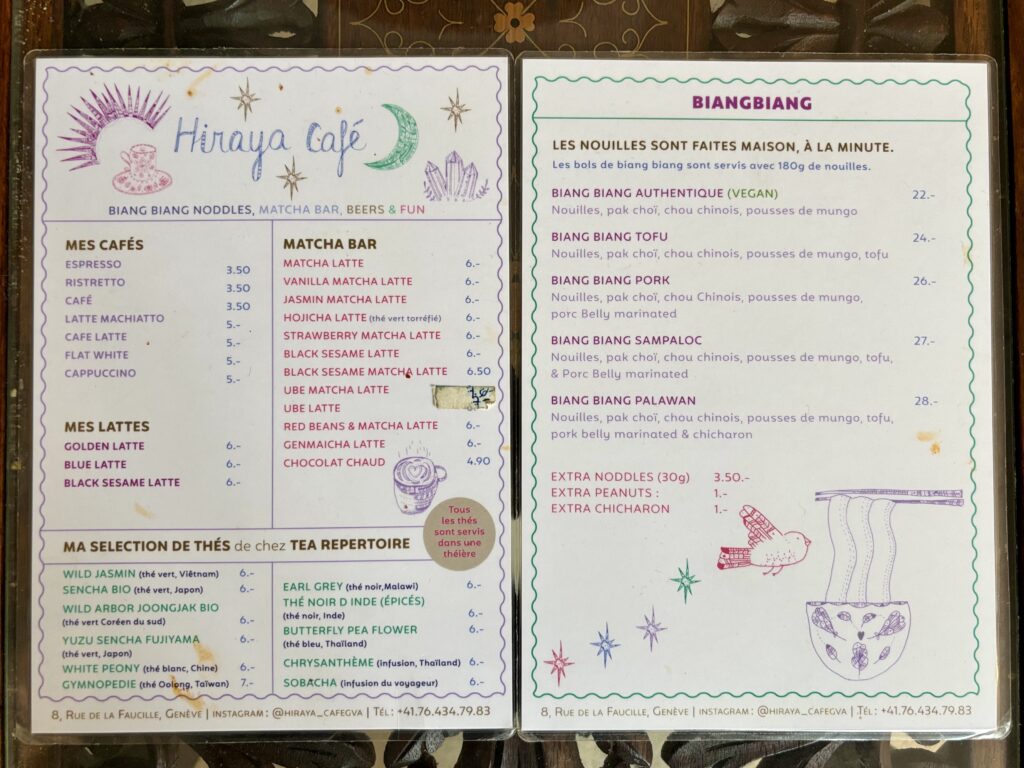 Hiraya Café
BIANG BIANG NODDLES, MATCHA BAR, BEERS & FUN
MES CAFÉS
ESPRESSO 3.50
RISTRETTO 3.50
CAFÉ 3.50
LATTE MACHIATTO 5.-
CAFE LATTE 5.-
FLAT WHITE 5.-
CAPPUCCINO 5.-
MES LATTES
GOLDEN LATTE 6.-
BLUE LATTE 6.-
BLACK SESAME LATTE 6.-
MATCHA BAR
MATCHA LATTE 6.-
VANILLA MATCHA LATTE 6.-
JASMIN MATCHA LATTE 6.-
HOJICHA LATTE (thé vert torréfié) 6.-
STRAWBERRY MATCHA LATTE 6.-
BLACK SESAME LATTE 6.-
BLACK SESAME MATCHA LATTE 6.50
UBE MATCHA LATTE
UBE LATTE
RED BEANS & MATCHA LATTE 6.-
GENMAICHA LATTE 6.-
CHOCOLAT CHAUD 4.90
Tous
les thés
sont servis
dans une
théière
MA SELECTION DE THÉS de chez TEA REPERTOIRE
WILD JASMIN (thé vert, Viêtnam) 6.-
SENCHA BIO (thé vert, Japon) 6.-
WILD ARBOR JOONGJAK BIO
(thé vert Coréen du sud) 6.-
YUZU SENCHA FUJIYAMA 6.-
(thé vert, Japon)
WHITE PEONY (thé blanc, Chine) 6.-
GYMNOPEDIE (thé Oolong, Taïwan) 7.-
EARL GREY (thé noir,Malawi) 6.-
THÉ NOIR D INDE (ÉPICÉS)
(thé noir, Inde) 6.-
BUTTERFLY PEA FLOWER 6.-
(thé bleu, Thaïland)
CHRYSANTHÈME (infusion, Thaïland) 6.-
SOBACHA (infusion du voyageur) 6.-
8, RUE DE LA FAUCILLE, GENÈVE | INSTAGRAM : @HIRAYA_CAFEGVA | TÉL : +41.76.434.79.83
BIANGBIANG
LES NOUILLES SONT FAITES MAISON, À LA MINUTE.
Les bols de biang biang sont servis avec 180g de nouilles.
BIANG BIANG AUTHENTIQUE (VEGAN) 22.-
Nouilles, pak choï, chou chinois, pousses de mungo
BIANG BIANG TOFU 24.-
Nouilles, pak choï, chou chinois, pousses de mungo, tofu
BIANG BIANG PORK 26.-
Nouilles, pak choï, chou Chinois, pousses de mungo,
porc Belly marinated
BIANG BIANG SAMPALOC 27.-
Nouilles, pak choï, chou chinois, pousses de mungo, tofu,
& Porc Belly marinated
BIANG BIANG PALAWAN 28.-
Nouilles, pak choï, chou chinois, pousses de mungo, tofu,
pork belly marinated & chicharon
EXTRA NODDLES (30g) 3.50.-
EXTRA PEANUTS : 1.-
EXTRA CHICHARON 1.-
8, RUE DE LA FAUCILLE, GENÈVE | INSTAGRAM : @HIRAYA_CAFEGVA | TÉL : +41.76.434.79.83